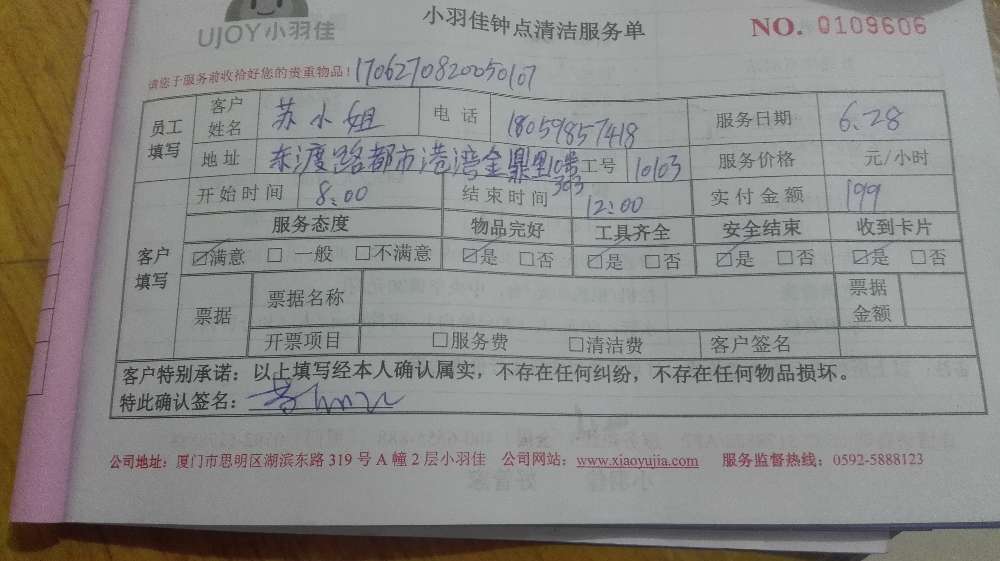 UJOY小羽佳
小羽佳钟点清洁服务单
NO. 0109606
请您于服务前收拾好您的贵重物品！ 1706270820050107
员工填写 客户姓名 苏小姐 电话 18059857418 服务日期 6.28
地址 东渡路都市港湾金鼎里10号303 工号 10103 服务价格 元/小时
客户填写 开始时间 8:00 结束时间 12:00 实付金额 199
服务态度 物品完好 工具齐全 安全结束 收到卡片
☑满意 □一般 □不满意 ☑是 □否 ☑是 □否 ☑是 □否 ☑是 □否
票据 票据名称 票据金额
开票项目 □服务费 □清洁费 客户签名
客户特别承诺：以上填写经本人确认属实，不存在任何纠纷，不存在任何物品损坏。
特此确认签名：
公司地址：厦门市思明区湖滨东路 319 号 A 幢 2 层小羽佳 公司网站：www.xiaoyujia.com 服务监督热线：0592-5888123